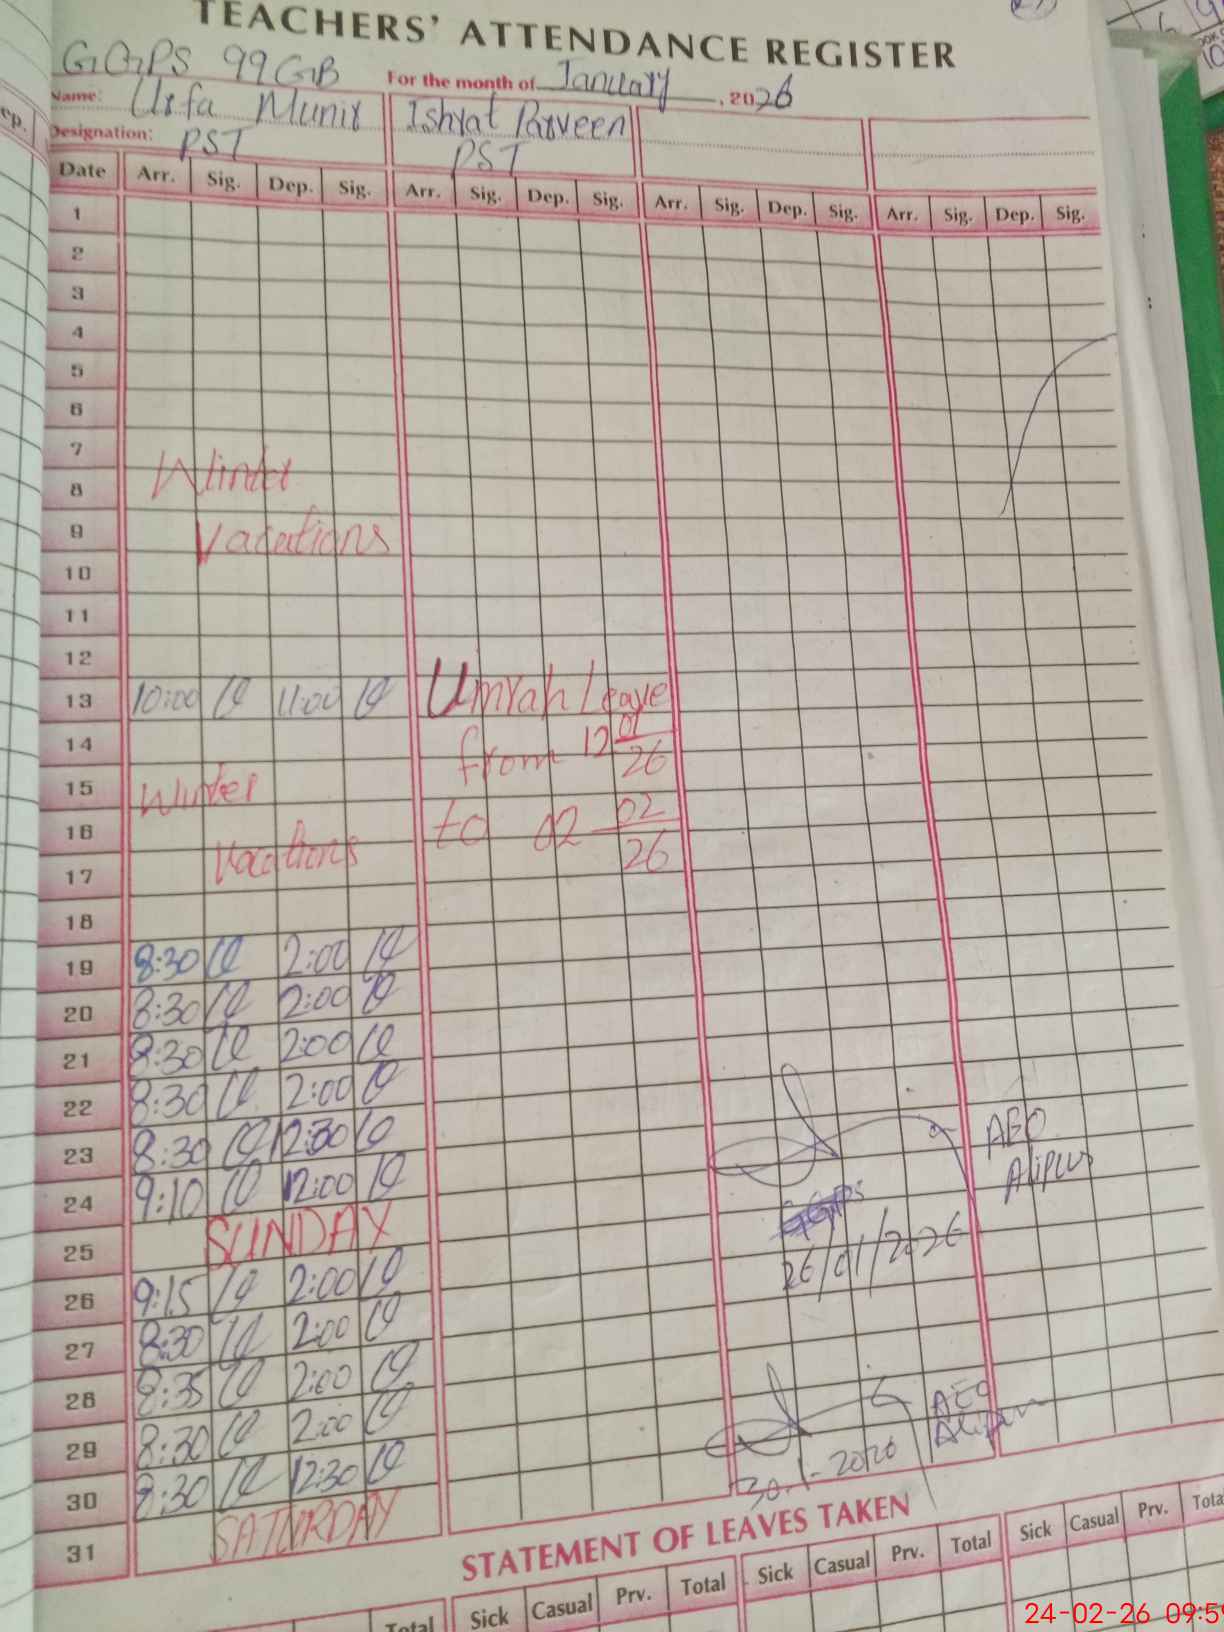 TEACHERS' ATTENDANCE REGISTER
GGPS 99GB For the month of January, 2026
Name: Urfa Munir Ishrat Parveen
Designation: PST PST
Date Arr. Sig. Dep. Sig. Arr. Sig. Dep. Sig. Arr. Sig. Dep. Sig. Arr. Sig. Dep. Sig.
1
2
3
4
5
6
7
Winter
8
9 Vacations
10
11
12
13 10:00 11:00 Umrah Leave
14 from 12 01/26
15 Winter
16 vacations to 02 02/26
17
18
19 8:30 2:00
20 8:30 2:00
21 8:30 2:00
22 8:30 2:00
23 8:30 12:30 AEO
24 9:10 12:00 Alipur
25 SUNDAY 26/01/2026
26 9:15 2:00
27 8:30 2:00
28 8:35 2:00 AEO
29 8:30 2:00 Alipur
30 8:30 12:30
31 SATURDAY
STATEMENT OF LEAVES TAKEN
Total Sick Casual Prv. Total Sick Casual Prv. Total Sick Casual Prv.
24-02-26